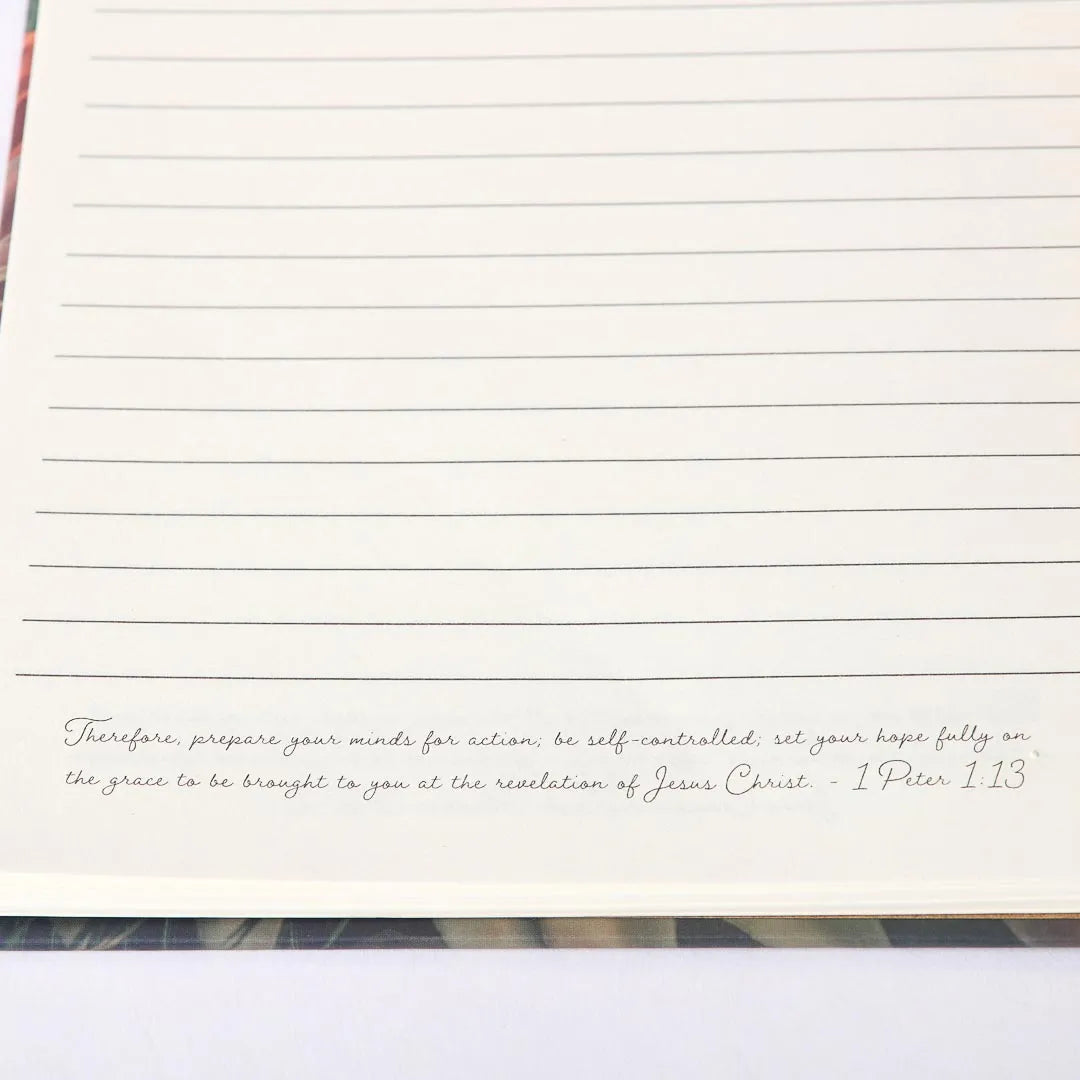 Therefore, prepare your minds for action; be self-controlled; set your hope fully on
the grace to be brought to you at the revelation of Jesus Christ. - 1 Peter 1:13